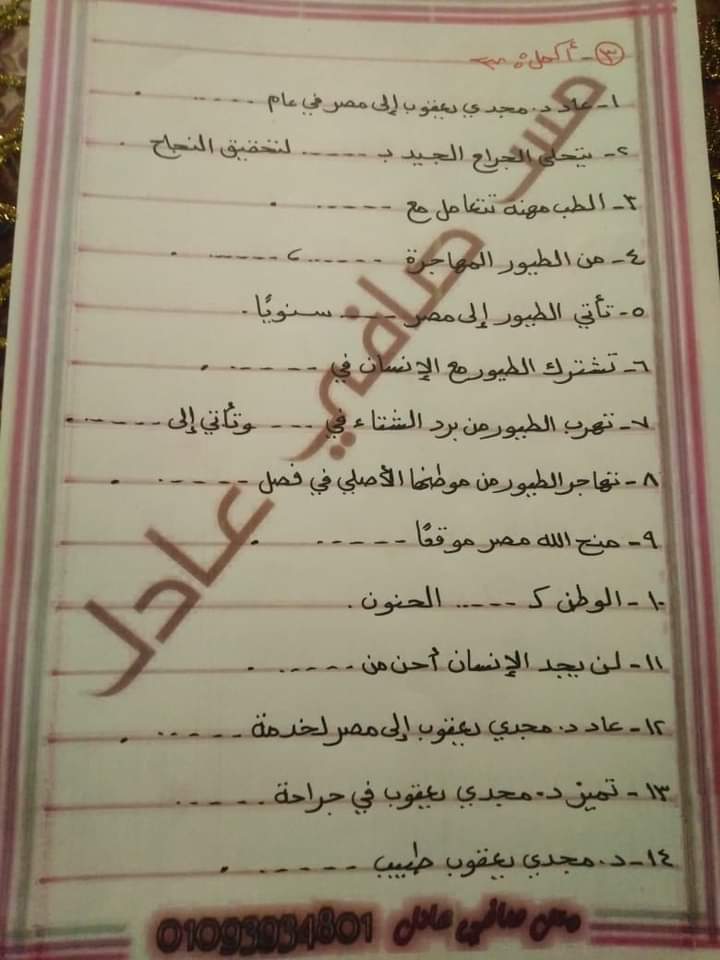 ٣- أكمل :-
١- عاد د. مجدي يعقوب إلى مصر في عام ...... .
٢- يتحلى الجراح الجيد بـ ..... لتحقيق النجاح .
٣- الطب مهنة تتعامل مع ...... .
٤- من الطيور المهاجرة ...... ، ...... .
٥- تأتي الطيور إلى مصر .... سنويًا .
٦- تشترك الطيور مع الإنسان في ..... .
٧- تهرب الطيور من برد الشتاء في .... وتأتي إلى ..... .
٨- تهاجر الطيور من موطنها الأصلي في فصل ..... .
٩- منح الله مصر موقعًا ..... .
١٠- الوطن كـ ..... الحنون .
١١- لن يجد الإنسان أحن من ..... .
١٢- عاد د. مجدي يعقوب إلى مصر لخدمة ..... .
١٣- تميز د. مجدي يعقوب في جراحة .....
١٤- د. مجدي يعقوب طبيب ..... .
مس صافي عادل
مس صافي عادل 01093934801